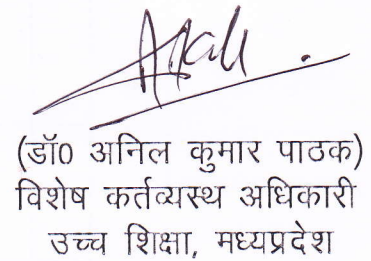 (डॉ0 अनिल कुमार पाठक)
विशेष कर्तव्यस्थ अधिकारी
उच्च शिक्षा, मध्यप्रदेश